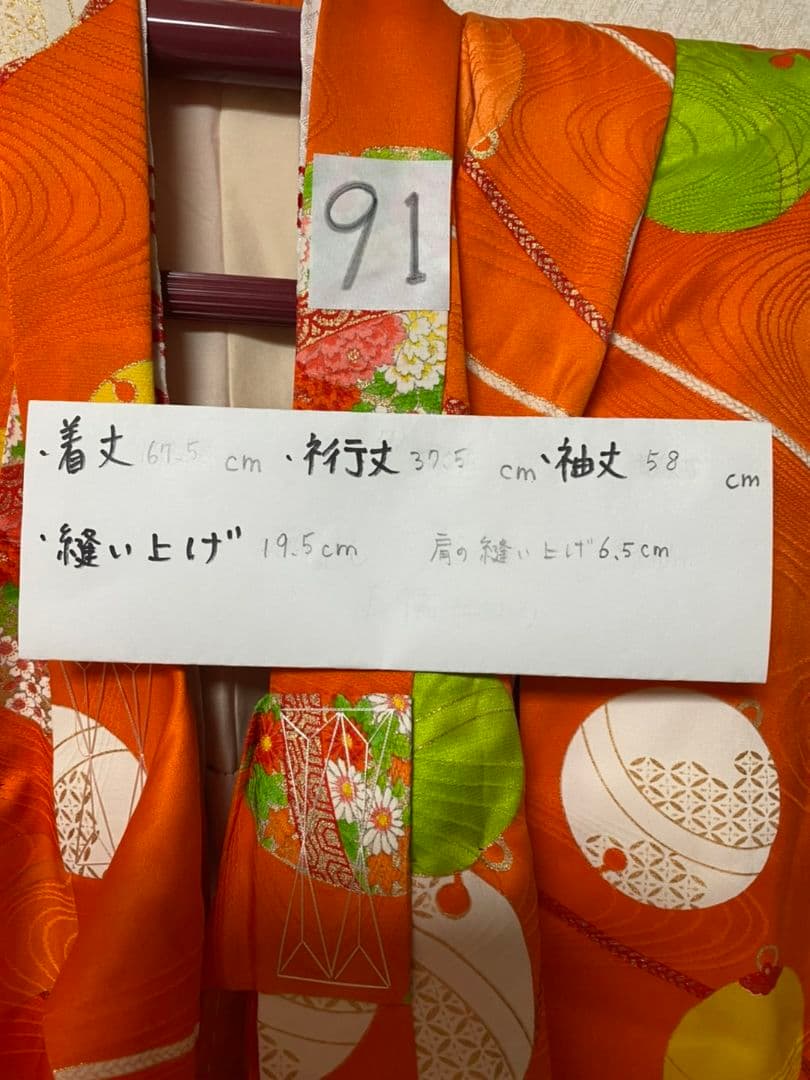 91
・着丈 67.5 cm ・裄丈 37.5 cm ・袖丈 58 cm
・縫い上げ 19.5cm 肩の縫い上げ6.5cm